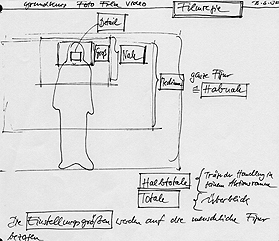 Grundkurs Foto Film Video
Filmregie
Detail
Groß
Nah
Medium
ganze Figur
= Halbnah
Halbtotale
Totale
Träger der Handlung in
seinem Aktionsraum
Überblick
Die Einstellungsgrößen werden auf die menschliche Figur
bezogen